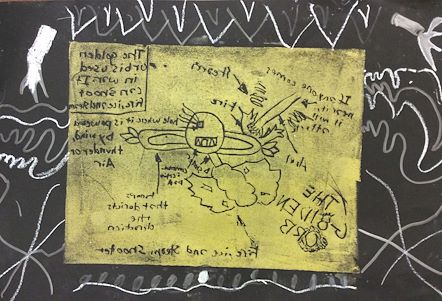 The golden
orb is used
in war. It
can shoot
fire, ice and
it is powered
by wind
thunder or
Air
Steam
Fire
If anyone comes
near it it
will
attack
THE
GOLDEN
ORB
horns
that
the
direction
Fire ice and Steam Shooter